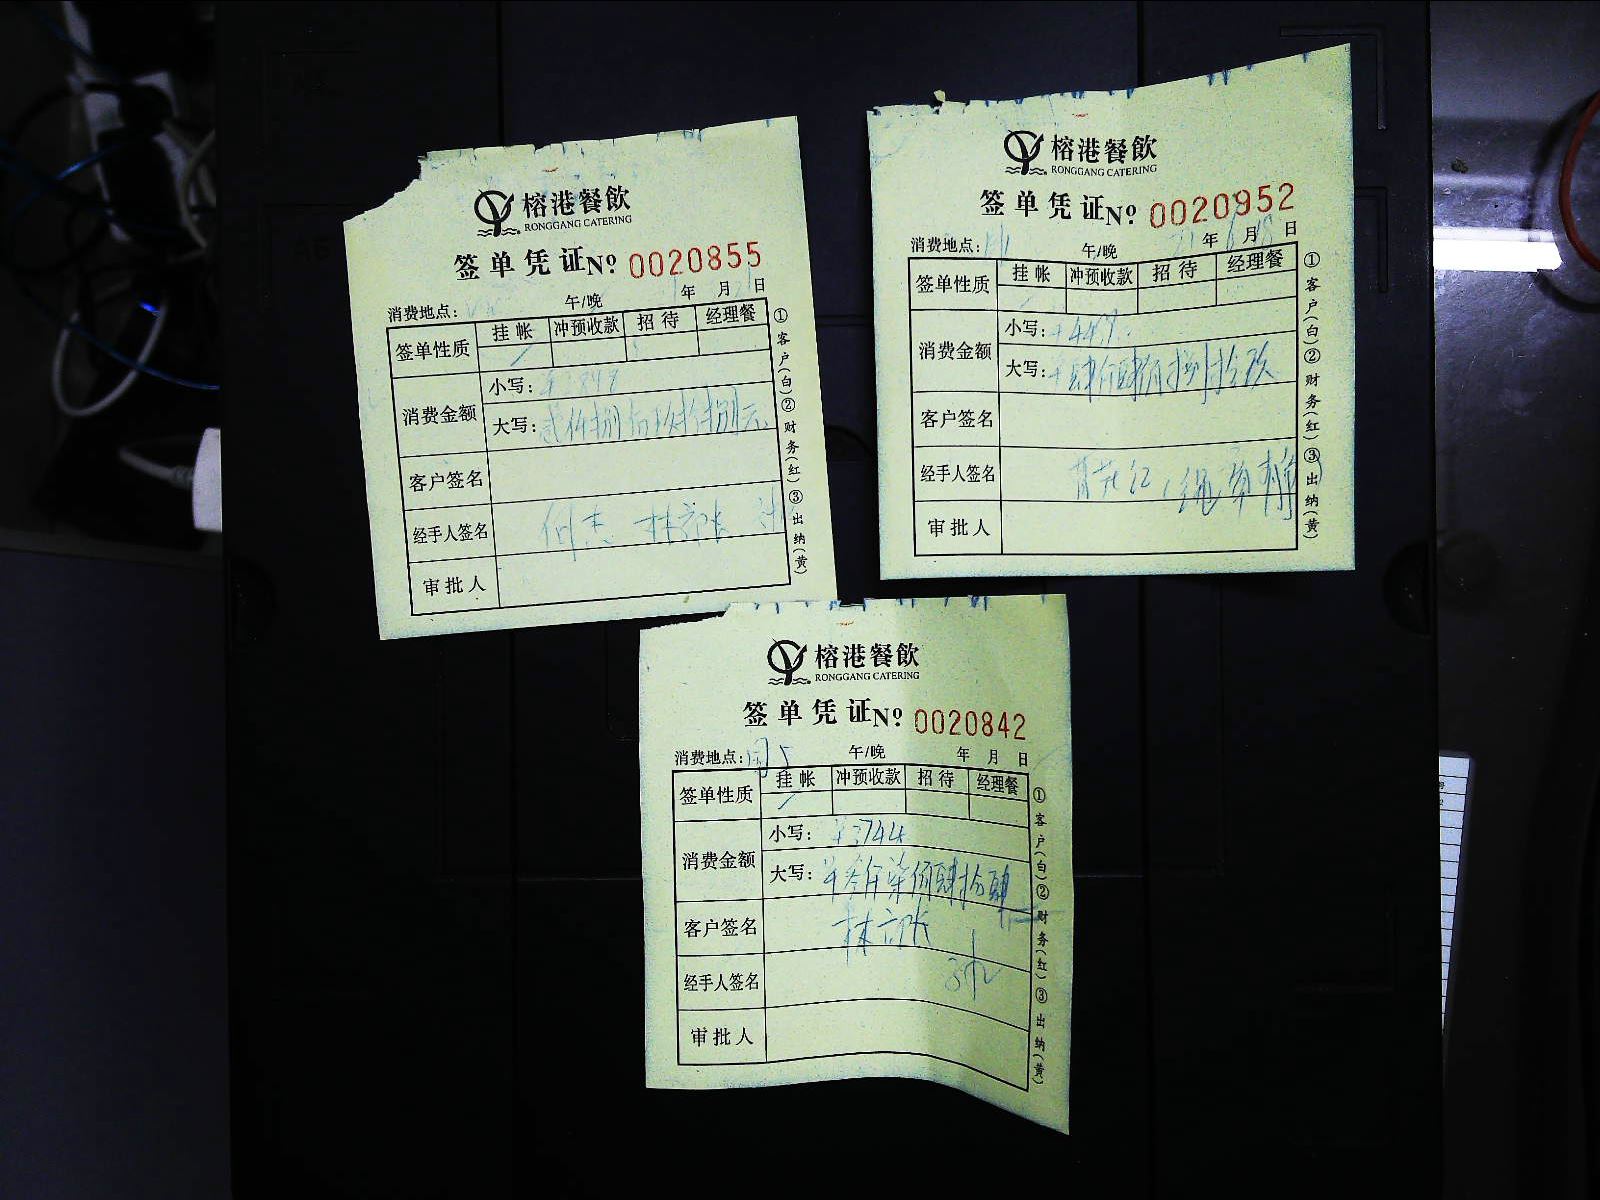 榕港餐飲
RONGGANG CATERING
签单凭证№ 0020855
消费地点: 午/晚 年 月 日
签单性质 挂帐 冲预收款 招待 经理餐
消费金额
小写:
大写:
客户签名
经手人签名 何杰 林部长
审批人
①客户(白)②财务(红)③出纳(黄)
榕港餐飲
RONGGANG CATERING
签单凭证№ 0020952
消费地点: 午/晚 21年 6月 日
签单性质 挂帐 冲预收款 招待 经理餐
消费金额
小写:
大写:
客户签名
经手人签名
审批人
①客户(白)②财务(红)③出纳(黄)
榕港餐飲
RONGGANG CATERING
签单凭证№ 0020842
消费地点: 午/晚 年 月 日
签单性质 挂帐 冲预收款 招待 经理餐
消费金额
小写: ¥3744
大写: 叁仟柒佰肆拾肆
客户签名 林部长
经手人签名
审批人
①客户(白)②财务(红)③出纳(黄)